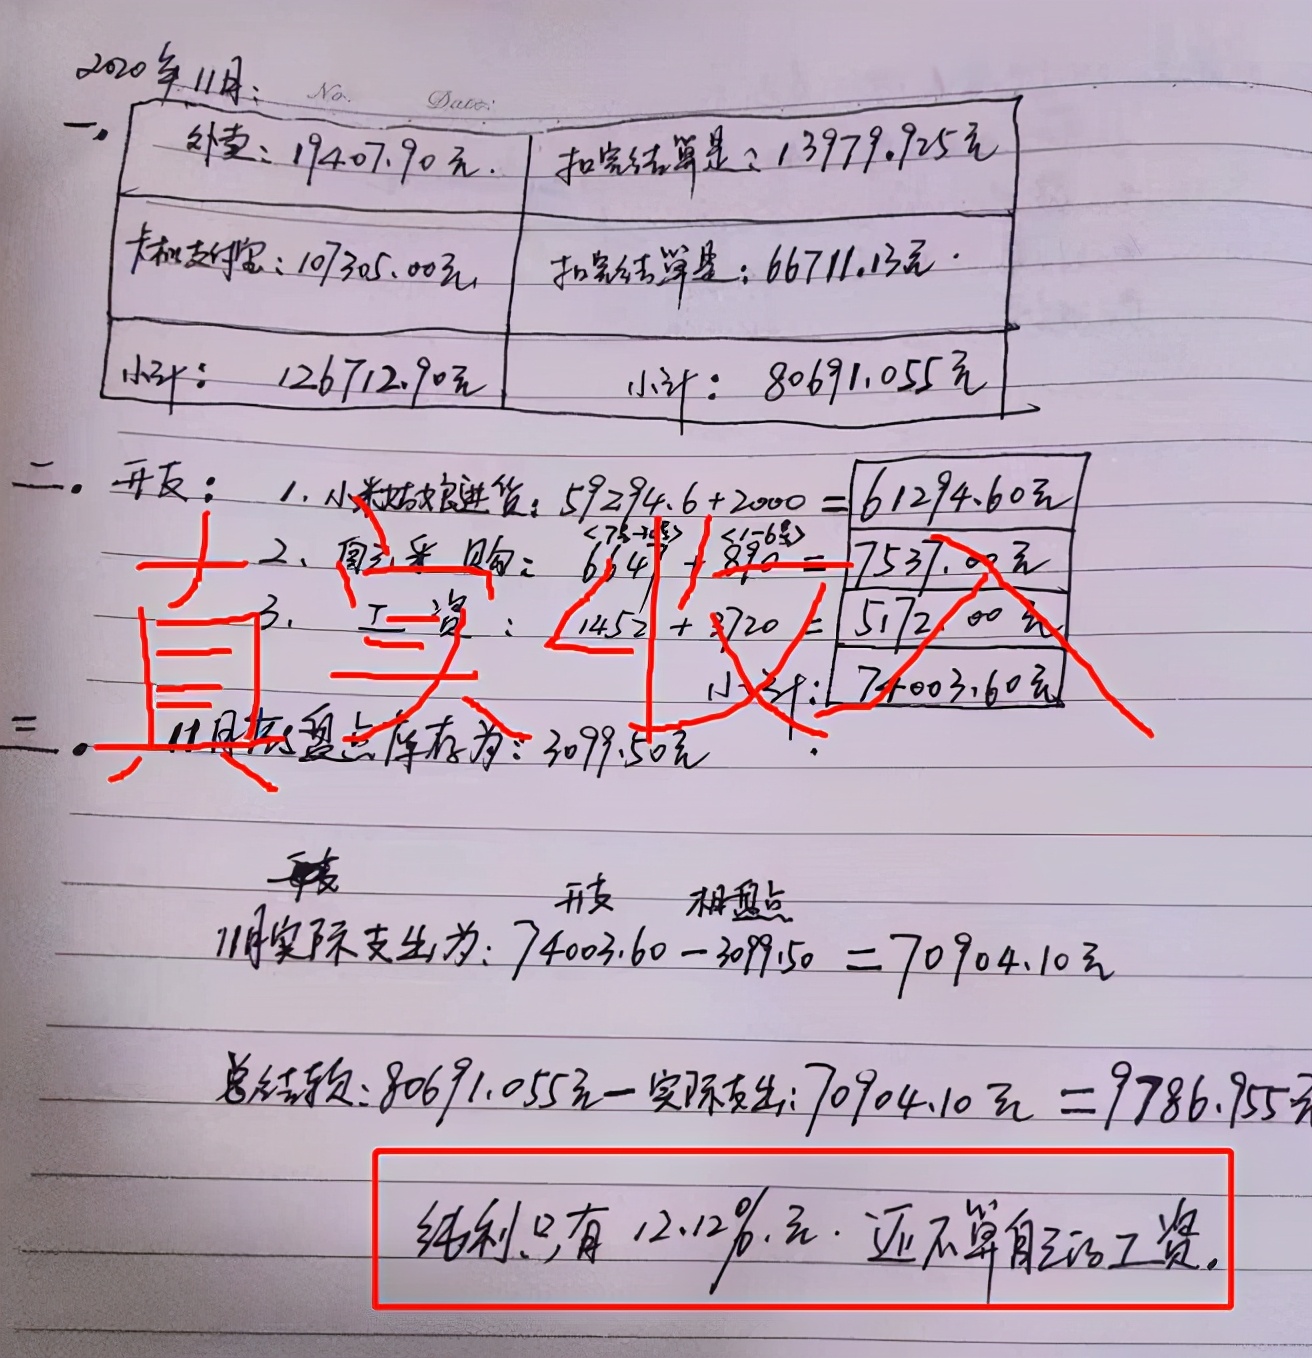 2020年11月:
No. Date:
一. 外卖:19407.90元. 扣完结算是:13979.925元
卡机支付宝:107305.00元 扣完结算是:66711.13元.
小计: 126712.90元 小计: 80691.055元
二. 开支: 1. 小米姑娘进货:59294.6+2000=61294.60元
2. 采购: 6647+890=7537.00元
3. 工资: 1452+3720=5172.00元
小计: 74003.60元
真实收入
三. 11月店盘点库存为:3099.50元
开支 相盘点
11月实际支出为:74003.60-3099.50=70904.10元
总结款:80691.055元-实际支出:70904.10元=9786.955元
纯利只有12.12%.元.还不算自己的工资.